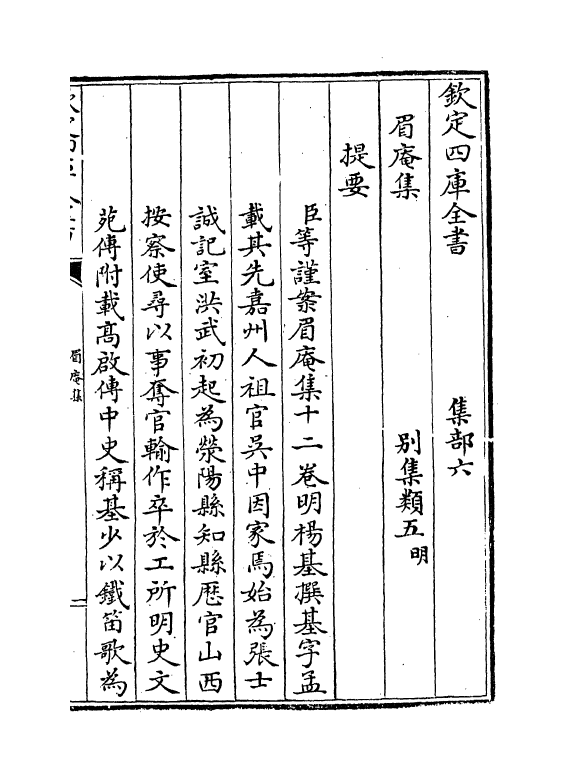 欽定四庫全書　集部六
眉庵集　別集類五明
提要
臣等謹案眉庵集十二卷明楊基撰基字孟
載其先嘉州人祖官吳中因家焉始為張士
誠記室洪武初起為滎陽縣知縣歴官山西
按察使尋以事奪官輸作卒於工所明史文
苑傳附載髙啟傳中史稱基少以鐵笛歌為
眉庵集